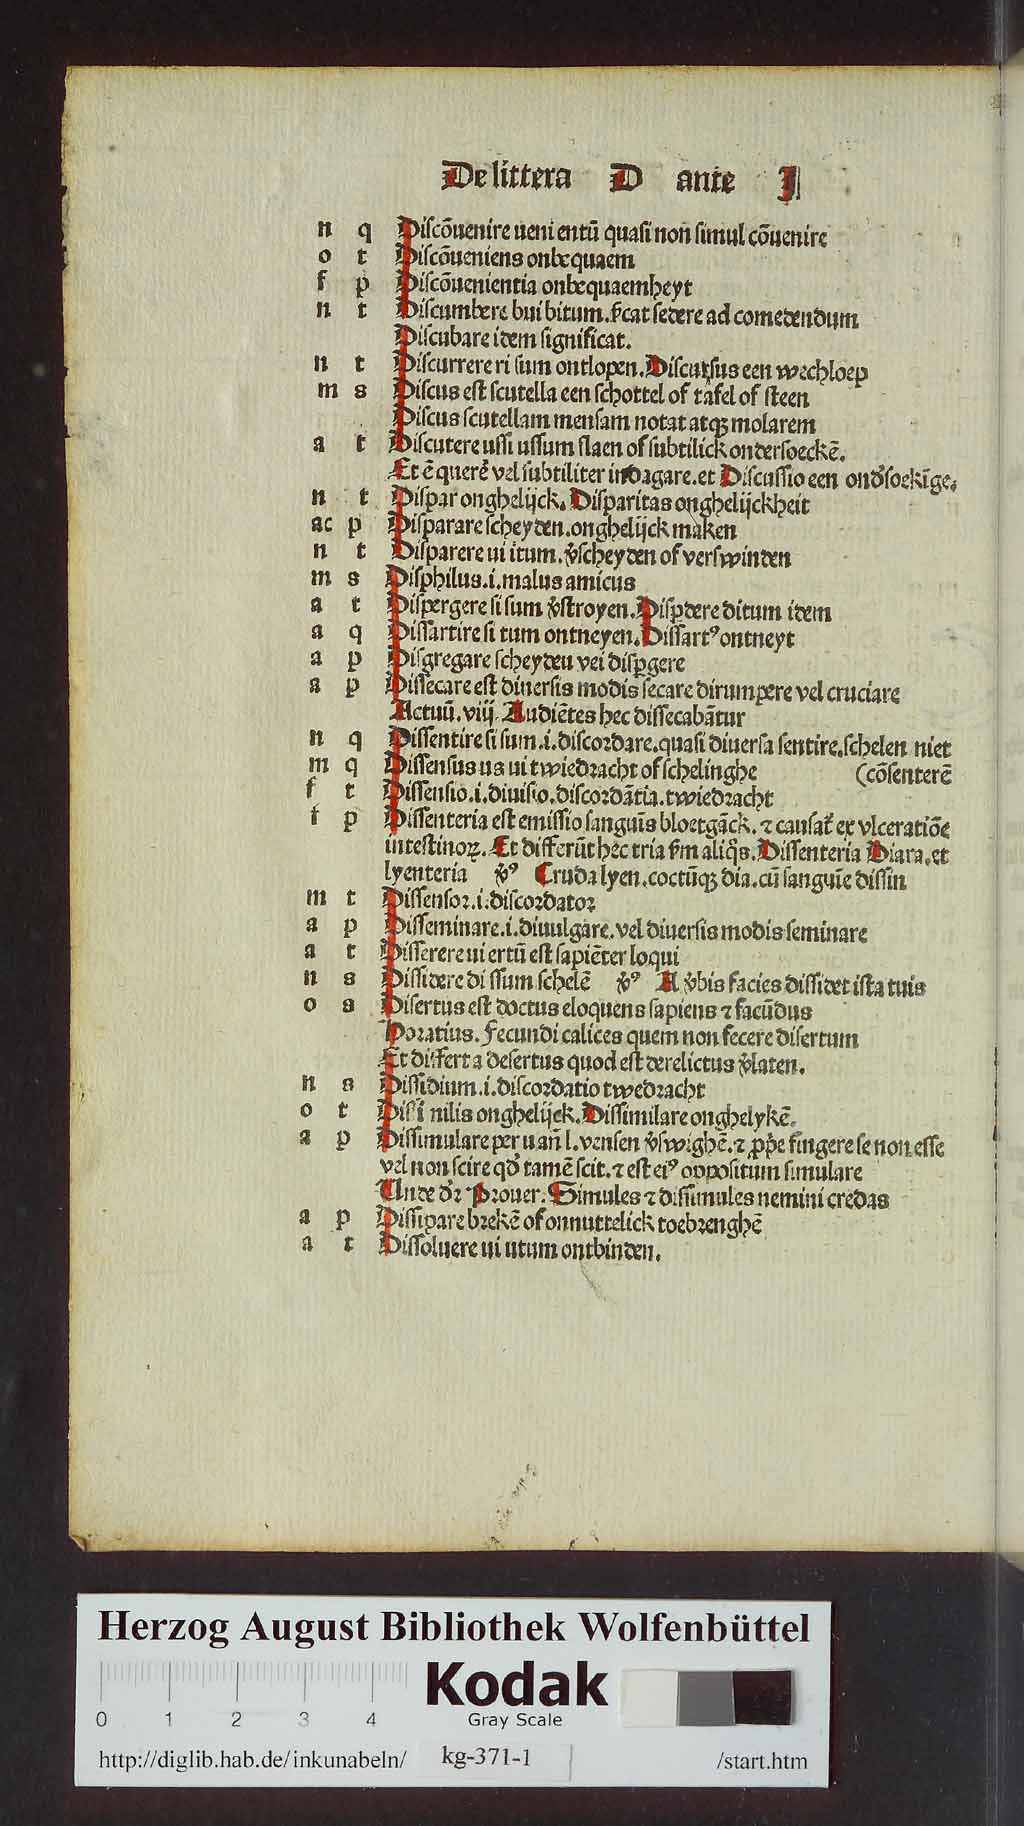 De littera D ante J
n q Discōuenire ueni entū quasi non simul cōuenire
o t Discōueniens onbequaem
f p Discōuenientia onbequaemheyt
n t Discumbere bui bitum. sedere ad comedendum
Discubare idem significat.
n t Discurrere ri sum ontlopen. Discursus een wechloep
m s Discus est scutella een schottel of tafel of steen
Discus scutellam mensam notat atqꝫ molarem
a t Discutere ussi ussum slaen of subtilick ondersoeckē.
Et ē vel subtiliter indagare. et Discussio een
n t Dispar onghelijck. Disparitas onghelijckheit
ac p Disparare scheyden. onghelijck maken
n t Disparere ui itum. v̄scheyden of verswinden
m s Disphilus .i. malus amicus
a t Dispergere si sum v̄stroyen. Dispdere ditum idem
a q Dissartire si tum ontneyen. Dissartꝰ ontneyt
a p Disgregare scheyden vel dispgere
a p Dissecare est diuersis modis secare dirumpere vel cruciare
Actuū. viij. Audiētes hec dissecabātur
n q Dissentire si sum .i. discordare. quasi diuersa sentire. schelen niet
m q Dissensus us ui twiedracht of schelinghe (cōsenterē
f t Dissensio .i. diuisio. discordātia. twiedracht
f p Dissenteria est emissio sanguīs bloetgāck. ⁊ ex vlceratiōe
intestinoꝝ. Et differūt hec tria Dissenteria Diara. et
lyenteria v̄ꝰ Cruda lyen. coctūqꝫ dia. cū sanguīe dissin
m t Dissensor .i. discordator
a p Disseminare .i. diuulgare. vel diuersis modis seminare
a t Disserere ui ertū est sapiēter loqui
n s Dissidere di ssum schelē v̄ꝰ A v̄bis facies dissidet ista tuis
o s Disertus est doctus eloquens sapiens ⁊ facūdus
Horatius. Fecundi calices quem non fecere disertum
Et differt a desertus quod est derelictus v̄laten.
n s Dissidium .i. discordatio twedracht
o t nilis onghelijck. Dissimilare onghelykē.
a p Dissimulare per u añ l. vensen v̄swighē. ⁊ fingere se non esse
vel non scire tamē scit. ⁊ est eiꝰ oppositum simulare
Unde Prouer. Simules ⁊ dissimules nemini credas
a p Dissipare brekē of onnuttelick toebrenghē
a t Dissoluere ui utum ontbinden.
Herzog August Bibliothek Wolfenbüttel
Kodak
0 1 2 3 4 Gray Scale
http://diglib.hab.de/inkunabeln/ kg-371-1 /start.htm